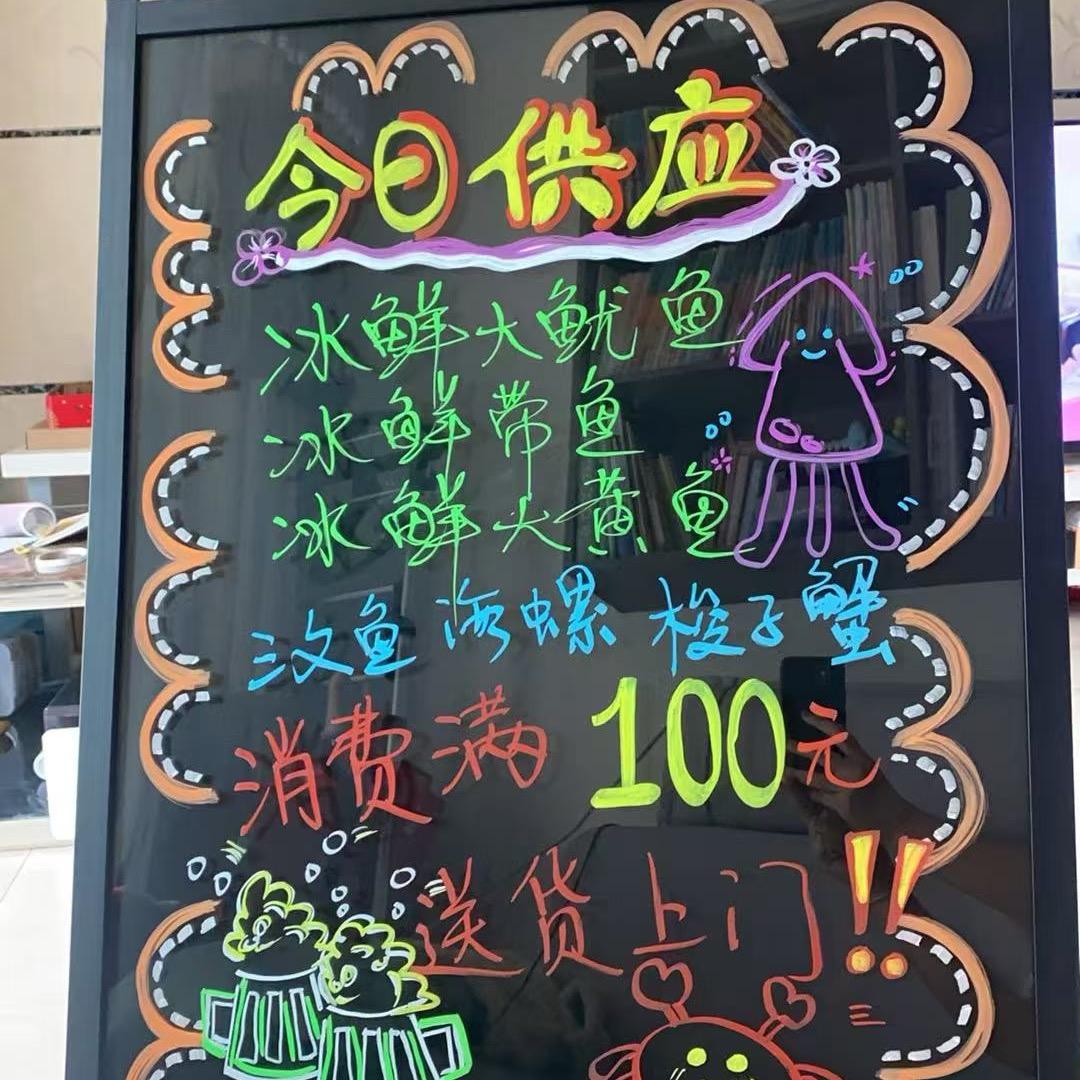 今日供应
冰鲜大鱿鱼
冰鲜带鱼
冰鲜大黄鱼
汶鱼 海螺 梭子蟹
消费满100元
送货上门!!